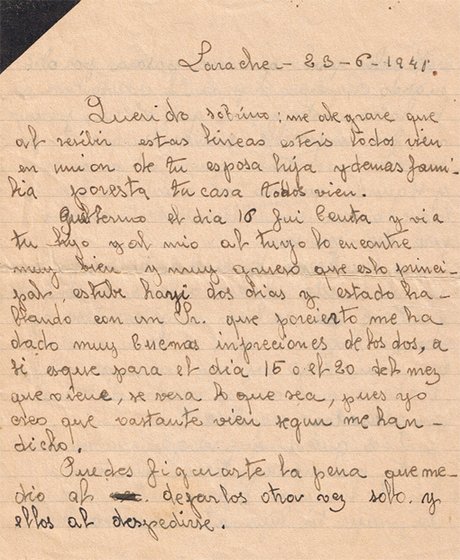 Larache - 23-6-1941.
Querido sobrino: me alegrare que
al recibir estas lineas esteis todos vien
en union de tu esposa hija y demas fami-
lia poresta tu casa todos vien.
Guillermo el dia 16 fui Ceuta y vi a
tu hijo y al mio al tuyo lo encontre
muy bien y muy grueso que esto princi-
pal, estube hayi dos dias y estado ha-
blando con un Sr. que porcierto me ha
dado muy buenas inpreciones de los dos, a
si esque para el dia 15 o el 20 del mez
que viene, se vera lo que sea, pues yo
creo que vastante vien segun me han-
dicho.
Puedes figurarte la pena que me-
dio al dejarlos otra vez solo. y
ellos al despedirse.